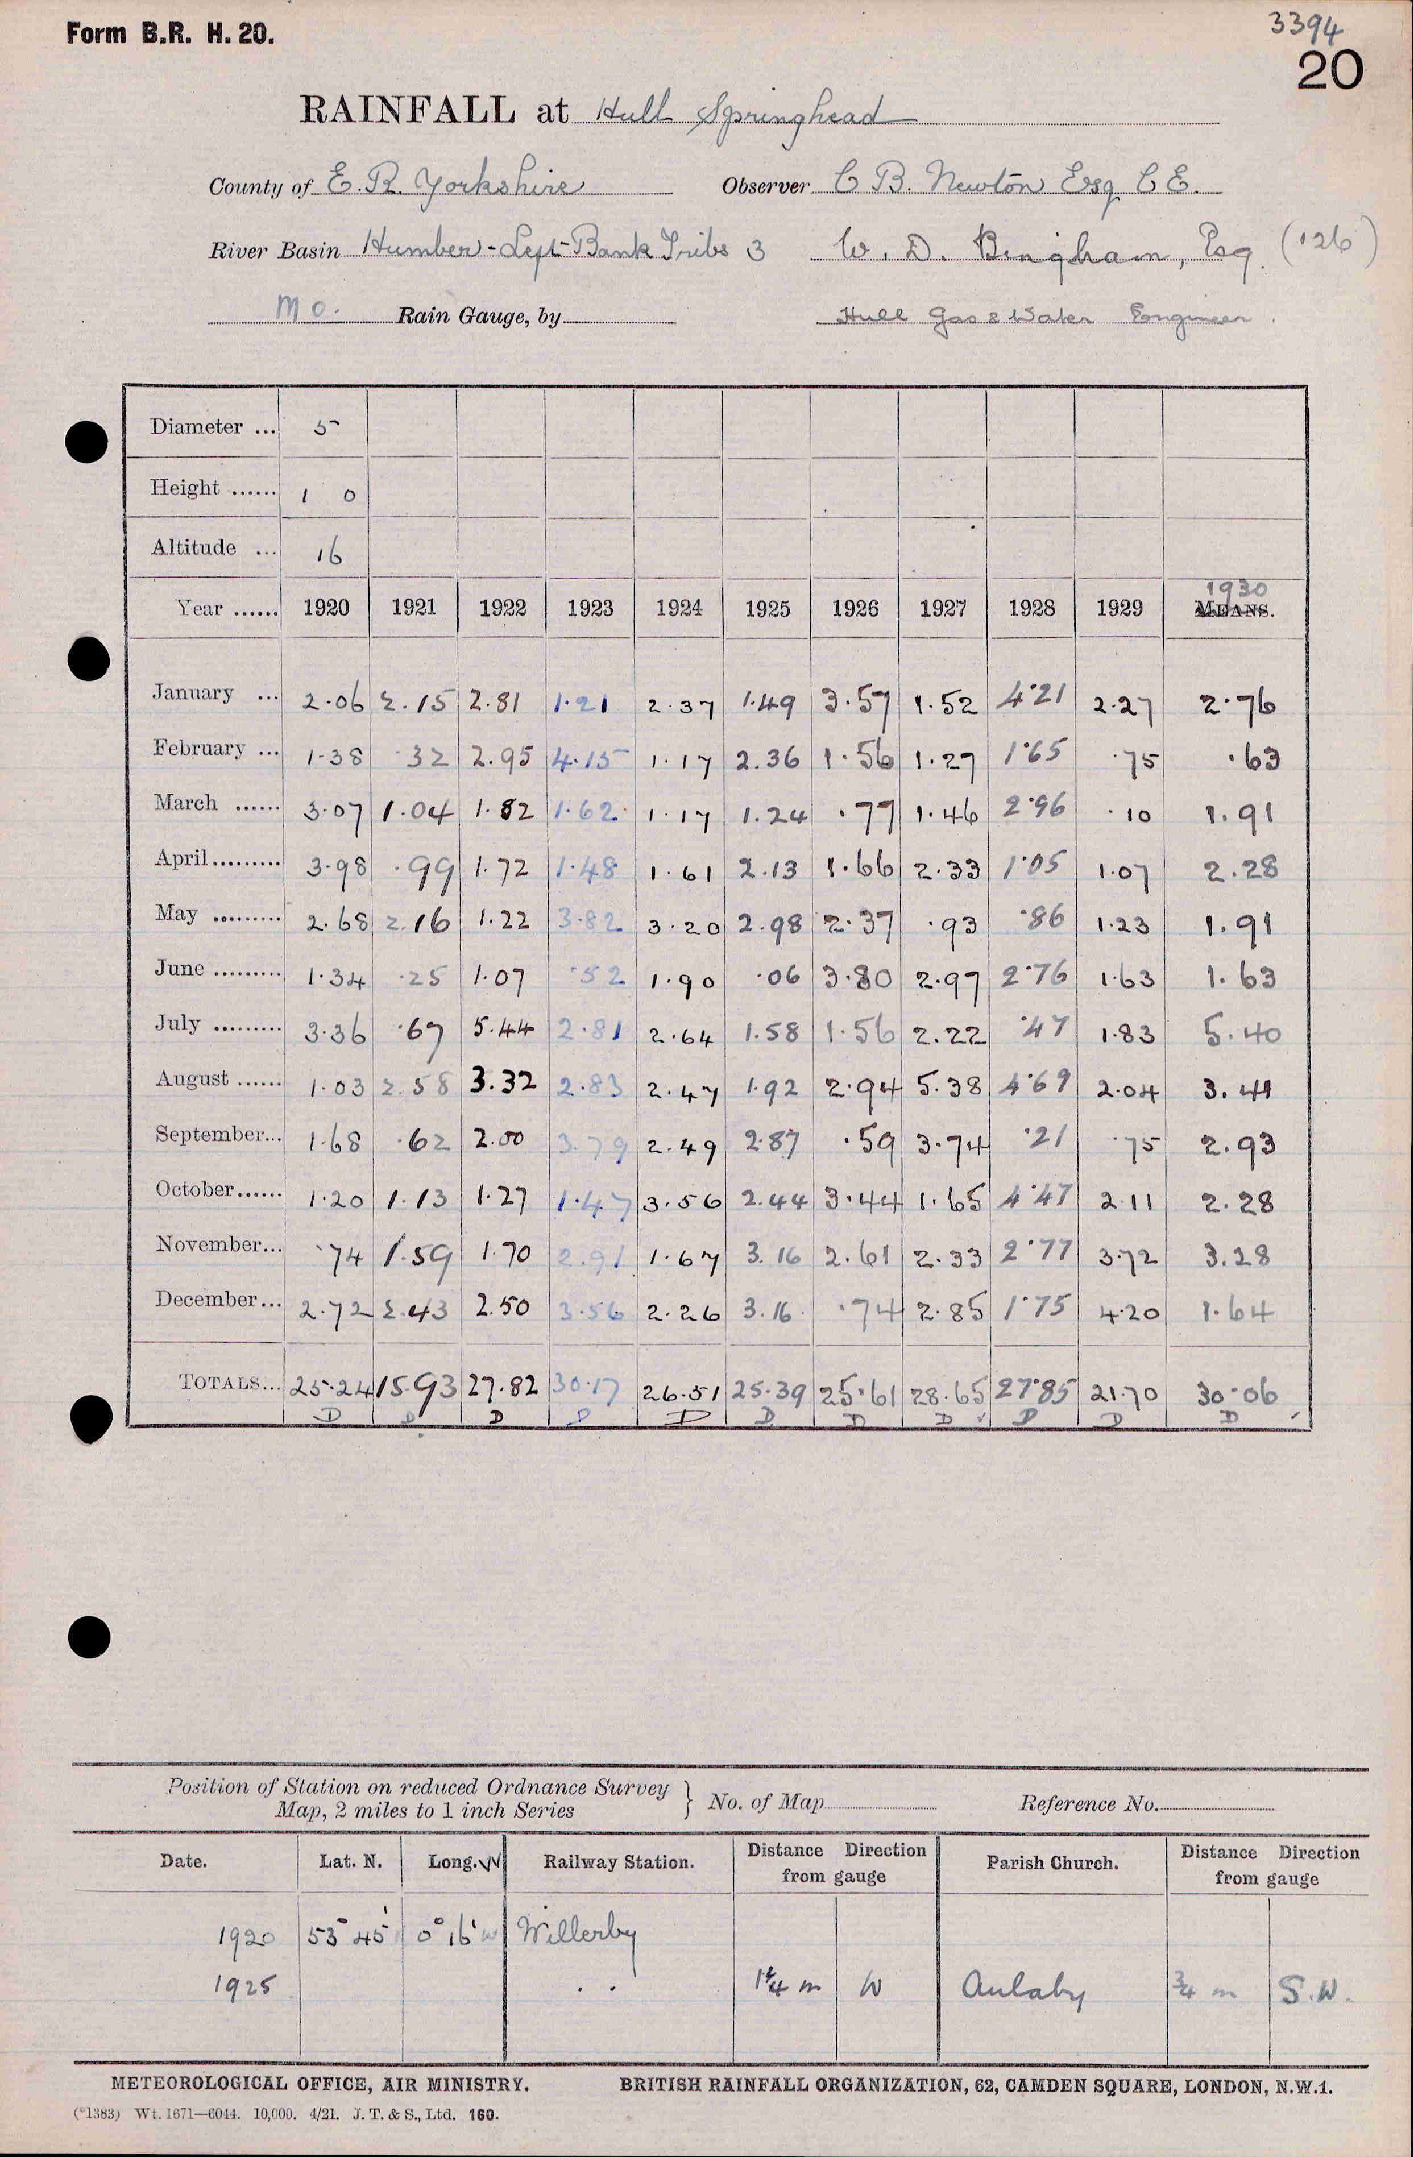 Form B.R. H. 20.
3394
20
RAINFALL at Hull Springhead
County of E. R. Yorkshire Observer C B. Newton Esq C E.
River Basin Humber - Left Bank Tribs 3 W. D. Bingham, Esq. (126)
M O. Rain Gauge, by Hull Gas & Water Engineer.
Diameter ... 5
Height ...... 1 0
Altitude ... 16
1930
Year ...... 1920 1921 1922 1923 1924 1925 1926 1927 1928 1929 MEANS.
January ... 2.06 2.15 2.81 1.21 2.37 1.49 3.57 1.52 4.21 2.27 2.76
February ... 1.38 .32 2.95 4.15 1.17 2.36 1.56 1.27 1.65 .75 .63
March ...... 3.07 1.04 1.82 1.62 1.17 1.24 .77 1.46 2.96 .10 1.91
April......... 3.98 .99 1.72 1.48 1.61 2.13 1.66 2.33 1.05 1.07 2.28
May ......... 2.68 2.16 1.22 3.82 3.20 2.98 2.37 .93 .86 1.23 1.91
June ......... 1.34 .25 1.07 .52 1.90 .06 3.80 2.97 2.76 1.63 1.63
July ......... 3.36 .67 5.44 2.81 2.64 1.58 1.56 2.22 .47 1.83 5.40
August ...... 1.03 2.58 3.32 2.83 2.47 1.92 2.94 5.38 4.69 2.04 3.41
September... 1.68 .62 2.00 3.79 2.49 2.87 .59 3.74 .21 .75 2.93
October...... 1.20 1.13 1.27 1.47 3.56 2.44 3.44 1.65 4.47 2.11 2.28
November... .74 1.59 1.70 2.91 1.67 3.16 2.61 2.33 2.77 3.72 3.28
December... 2.72 2.43 2.50 3.56 2.26 3.16 .74 2.85 1.75 4.20 1.64
TOTALS... 25.24 15.93 27.82 30.17 26.51 25.39 25.61 28.65 27.85 21.70 30.06
D D D D D D D D D D D
Position of Station on reduced Ordnance Survey
Map, 2 miles to 1 inch Series } No. of Map Reference No.
Date. Lat. N. Long. W Railway Station. Distance Direction from gauge Parish Church. Distance Direction from gauge
1920 53° 45' 0° 16' W Willerby
1925 . . 1¼ m W Anlaby ¾ m S.W.
METEOROLOGICAL OFFICE, AIR MINISTRY. BRITISH RAINFALL ORGANIZATION, 62, CAMDEN SQUARE, LONDON, N.W.1.
(*1383) Wt. 1671—6044. 10,000. 4/21. J. T. & S., Ltd. 160.